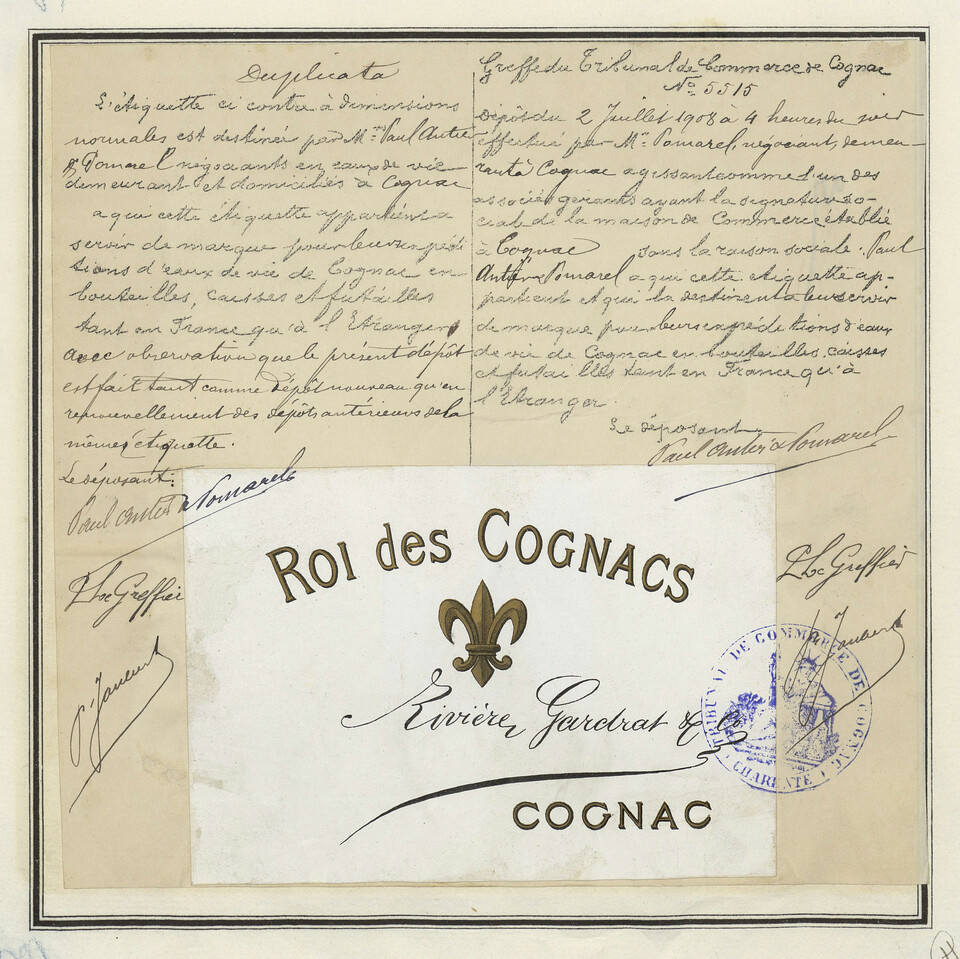 Duplicata
L'étiquette ci contre à dimensions
normales est destinée par Mrs Paul Antier
& Pomarel négociants en eaux de vie
demeurant et domiciliés à Cognac
a qui cette étiquette appartient a
servir de marque pour leurs expédi
tions d'eaux de vie de Cognac en
bouteilles, caisses et futailles
tant en France qu'à l'Etranger
avec observation que le présent dépôt
est fait tant comme dépôt nouveau qu'en
renouvellement des dépôts antérieurs de la
même étiquette.
Le déposant:
Paul Antier & Pomarel
Le Greffier
Greffe du Tribunal de Commerce de Cognac
No 5515
Dépôt du 2 Juillet 1908 à 4 heures du soir
effectué par Mr Pomarel, négociant, demeu-
rant à Cognac agissant comme l'un des
associés gérants ayant la signature so-
ciale de la maison de Commerce établie
à Cognac sous la raison sociale. Paul
Antier & Pomarel a qui cette etiquette ap-
partient et qui la destinent a leur servir
de marque pour leurs expéditions d'eaux
de vie de Cognac en bouteilles, caisses
et futailles tant en France qu'à
l'Etranger.
Le déposant
Paul Antier & Pomarel
Le Greffier
ROI des COGNACS
Rivière, Gardrat & Co
COGNAC
TRIBUNAL DE COMMERCE DE COGNAC
CHARENTE